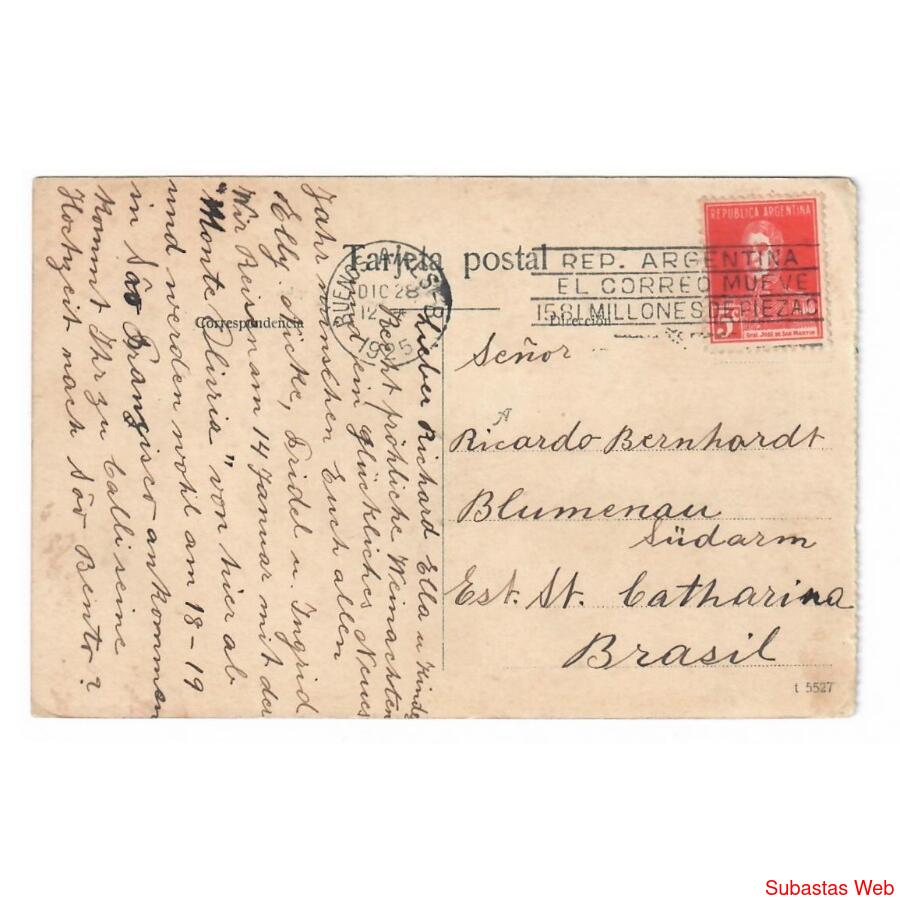 Tarjeta postal
Correspondencia
Dirección
BUENOS AIRES
DIC 28
12
REP. ARGENTINA
EL CORREO MUEVE
1581 MILLONES DE PIEZAS
REPUBLICA ARGENTINA
5c
Gral. JOSÉ DE SAN MARTIN
Lieber Richard Ella u Kinder
Recht fröhliche Weinachten
und ein glückliches Neues
Jahr wünschen Euch allen
Elly, Micke, Fridel u. Ingrid
Wir Reisen am 14 Januar mit der
"Monte Olivia" von hier ab
und werden wohl am 18-19
in São Franzisco ankommen
kommt Ihr zu Calliseine
Hochzeit nach São Bento?
Señor
Ricardo Bernhardt
Blumenau
Südarm
Est. St. Catharina
Brasil
t 5527
Subastas Web